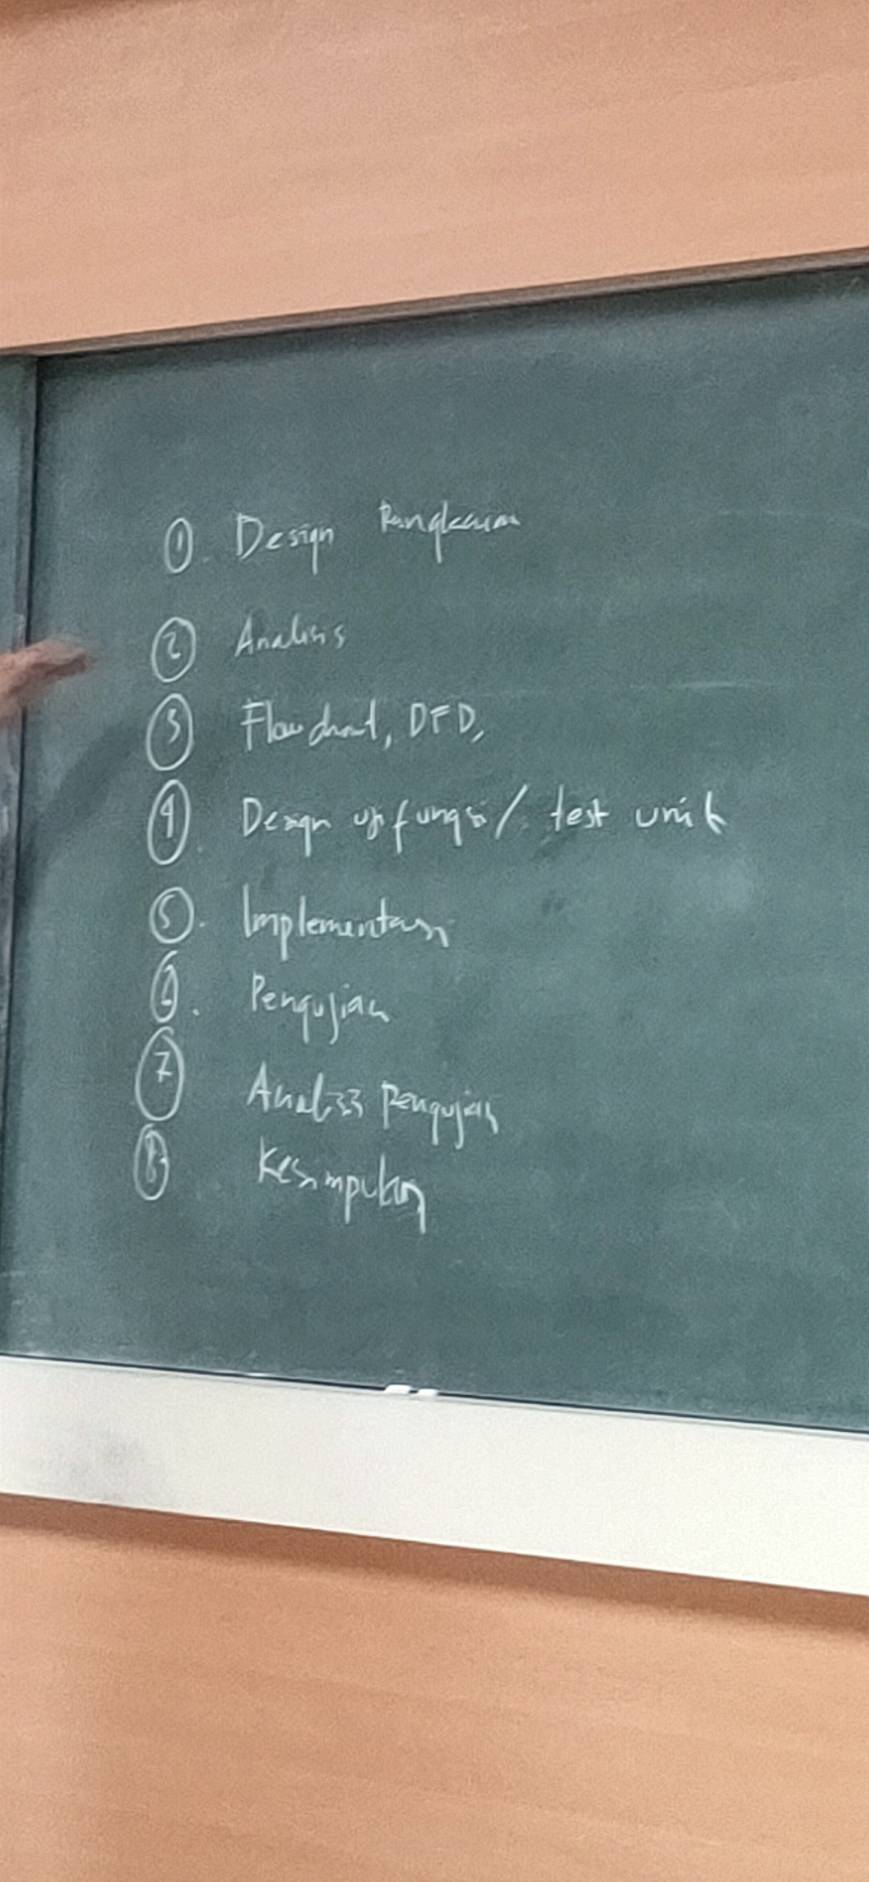 ① Design Rangkaian
② Analisis
③ Flowchart, DFD,
④. Design uji fungsi / test unit
⑤. Implementasi
⑥. Pengujian
⑦ Analisis Pengujian
⑧ Kesimpulan